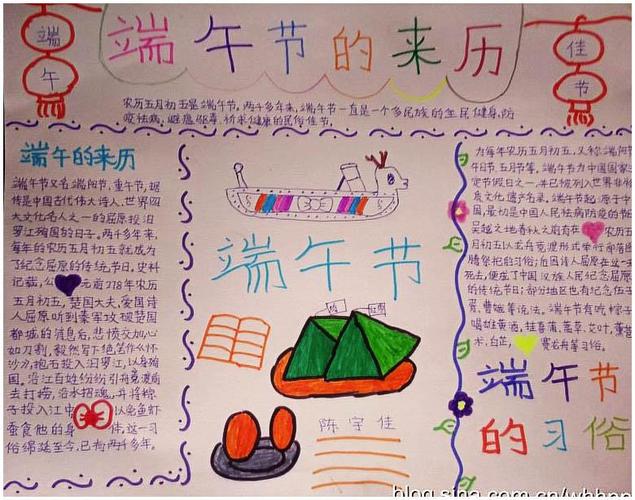 端午节的来历
端
午
佳
节
农历五月初五是端午节,两千多年来,端午节一直是一个多民族的全民健身,防
疫祛病,避瘟驱毒,祈求健康的民俗佳节。
端午的来历
端午节又名端阳节,重午节,据
传是中国古代伟大诗人、世界四
大文化名人之一的屈原投汨
罗江殉国的日子。两千多年来,
每年的农历五月初五就成为
了纪念屈原的传统节日,史料
记载,公 元前278年农历
五月初五,楚国大夫、爱国诗
人屈原听到秦军攻破楚国
都城的消息后,悲愤交加,心
如刀割,毅然写下绝笔作《怀
沙》,抱石投入汨罗江,以身殉
国。沿江百姓纷纷引舟竞渡前
去打捞,沿水招魂,并将粽
子投入江中 以免鱼虾
蚕食他的身 体,这一习
俗绵延至今,已有两千多年。
端午节
陈宇佳
为每年农历五月初五,又称端阳节
午日节、五月节等。端午节为中国国家
定节假日之一,并已被列入世界非物
质文化遗产名录。端午节起源于中
国,最初是中国人民祛病防疫的节
吴越之地春秋之前有在 农历五
月初五以龙舟竞渡形式举行部落图
腾祭祀的习俗;后因诗人屈原在这一
死去,便成了中国汉族人民纪念屈原
的传统节日;部分地区也有纪念伍子
胥、曹娥等说法。端午节有吃粽子
喝雄黄酒,挂菖蒲、蒿草、艾叶,薰苍
术、白芷, 赛龙舟等习俗。
端午节
的习俗
blog.sina.com.cn/whhnn